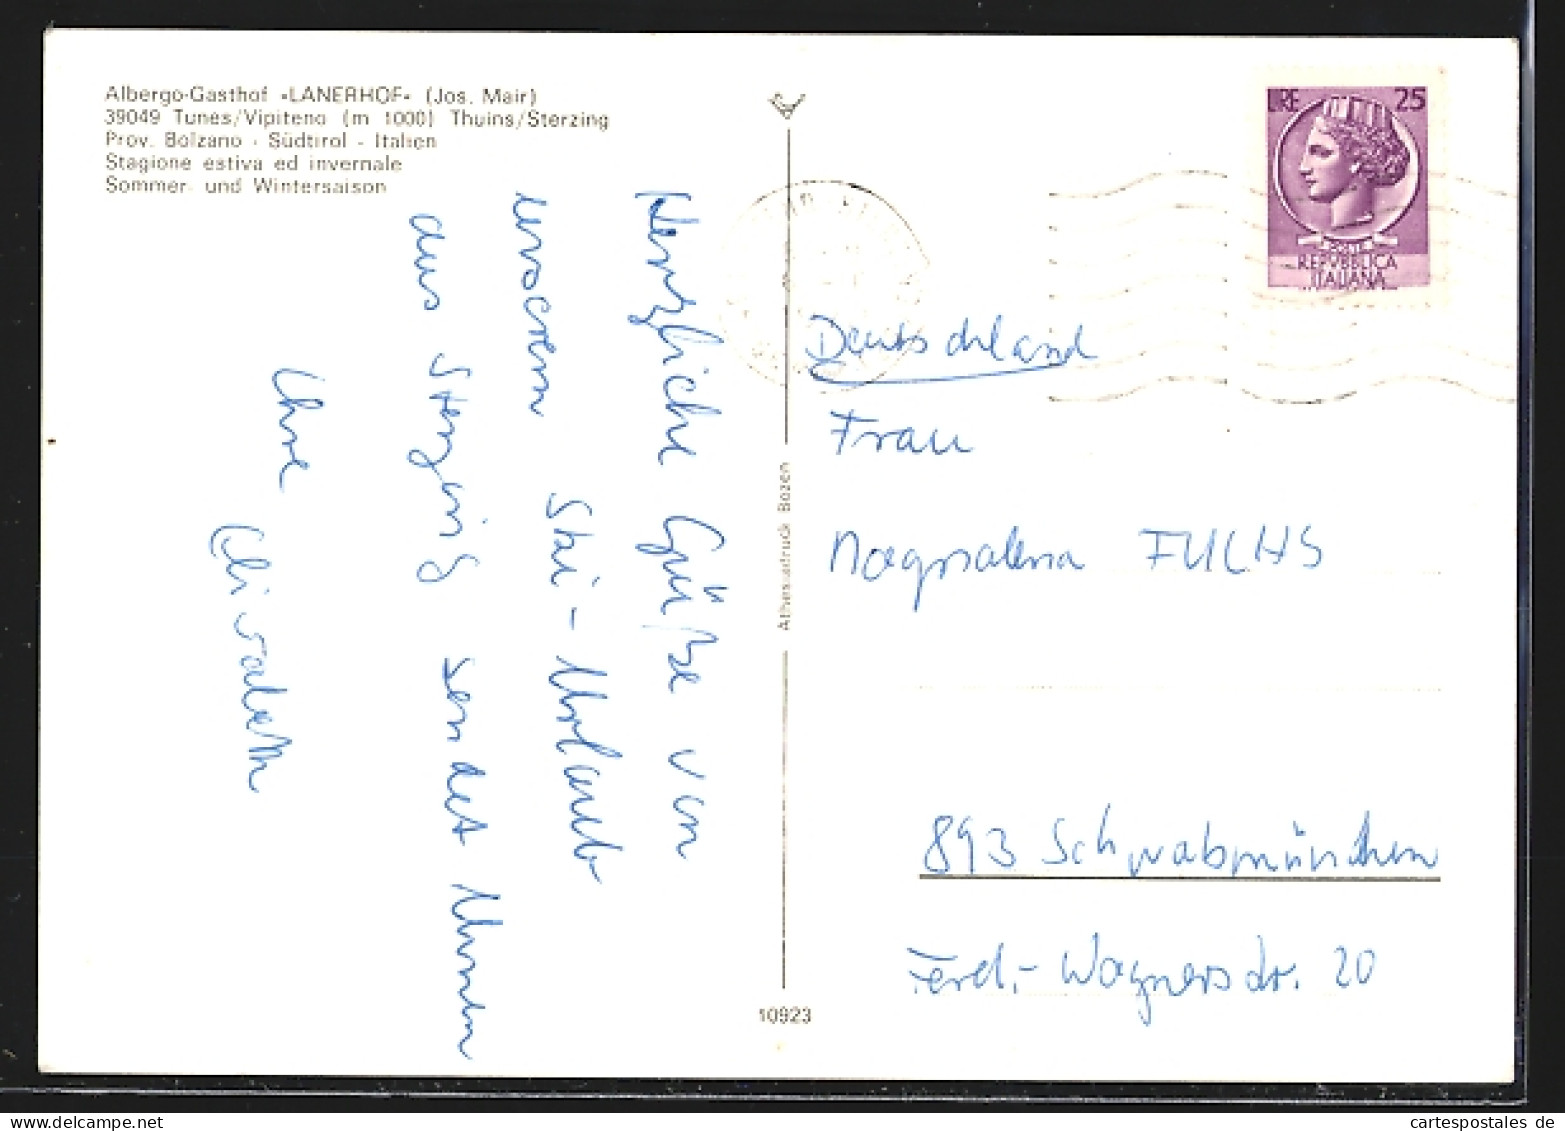 Albergo-Gasthof «LANERHOF» (Jos. Mair)
39049 Tunes/Vipiteno (m 1000) Thuins/Sterzing
Prov. Bolzano - Südtirol - Italien
Stagione estiva ed invernale
Sommer- und Wintersaison
Herzliche Grüße von
unserem Ski-Urlaub
aus Sterzing sendet Ihnen
Ihre
Elisabeth
Athesiadruck Bozen
10923
LIRE 25
POSTE
REPVBBLICA
ITALIANA
Deutschland
Frau
Magdalena FUCHS
893 Schwabmünchen
Ferd.-Wagnerstr. 20
cartespostales de